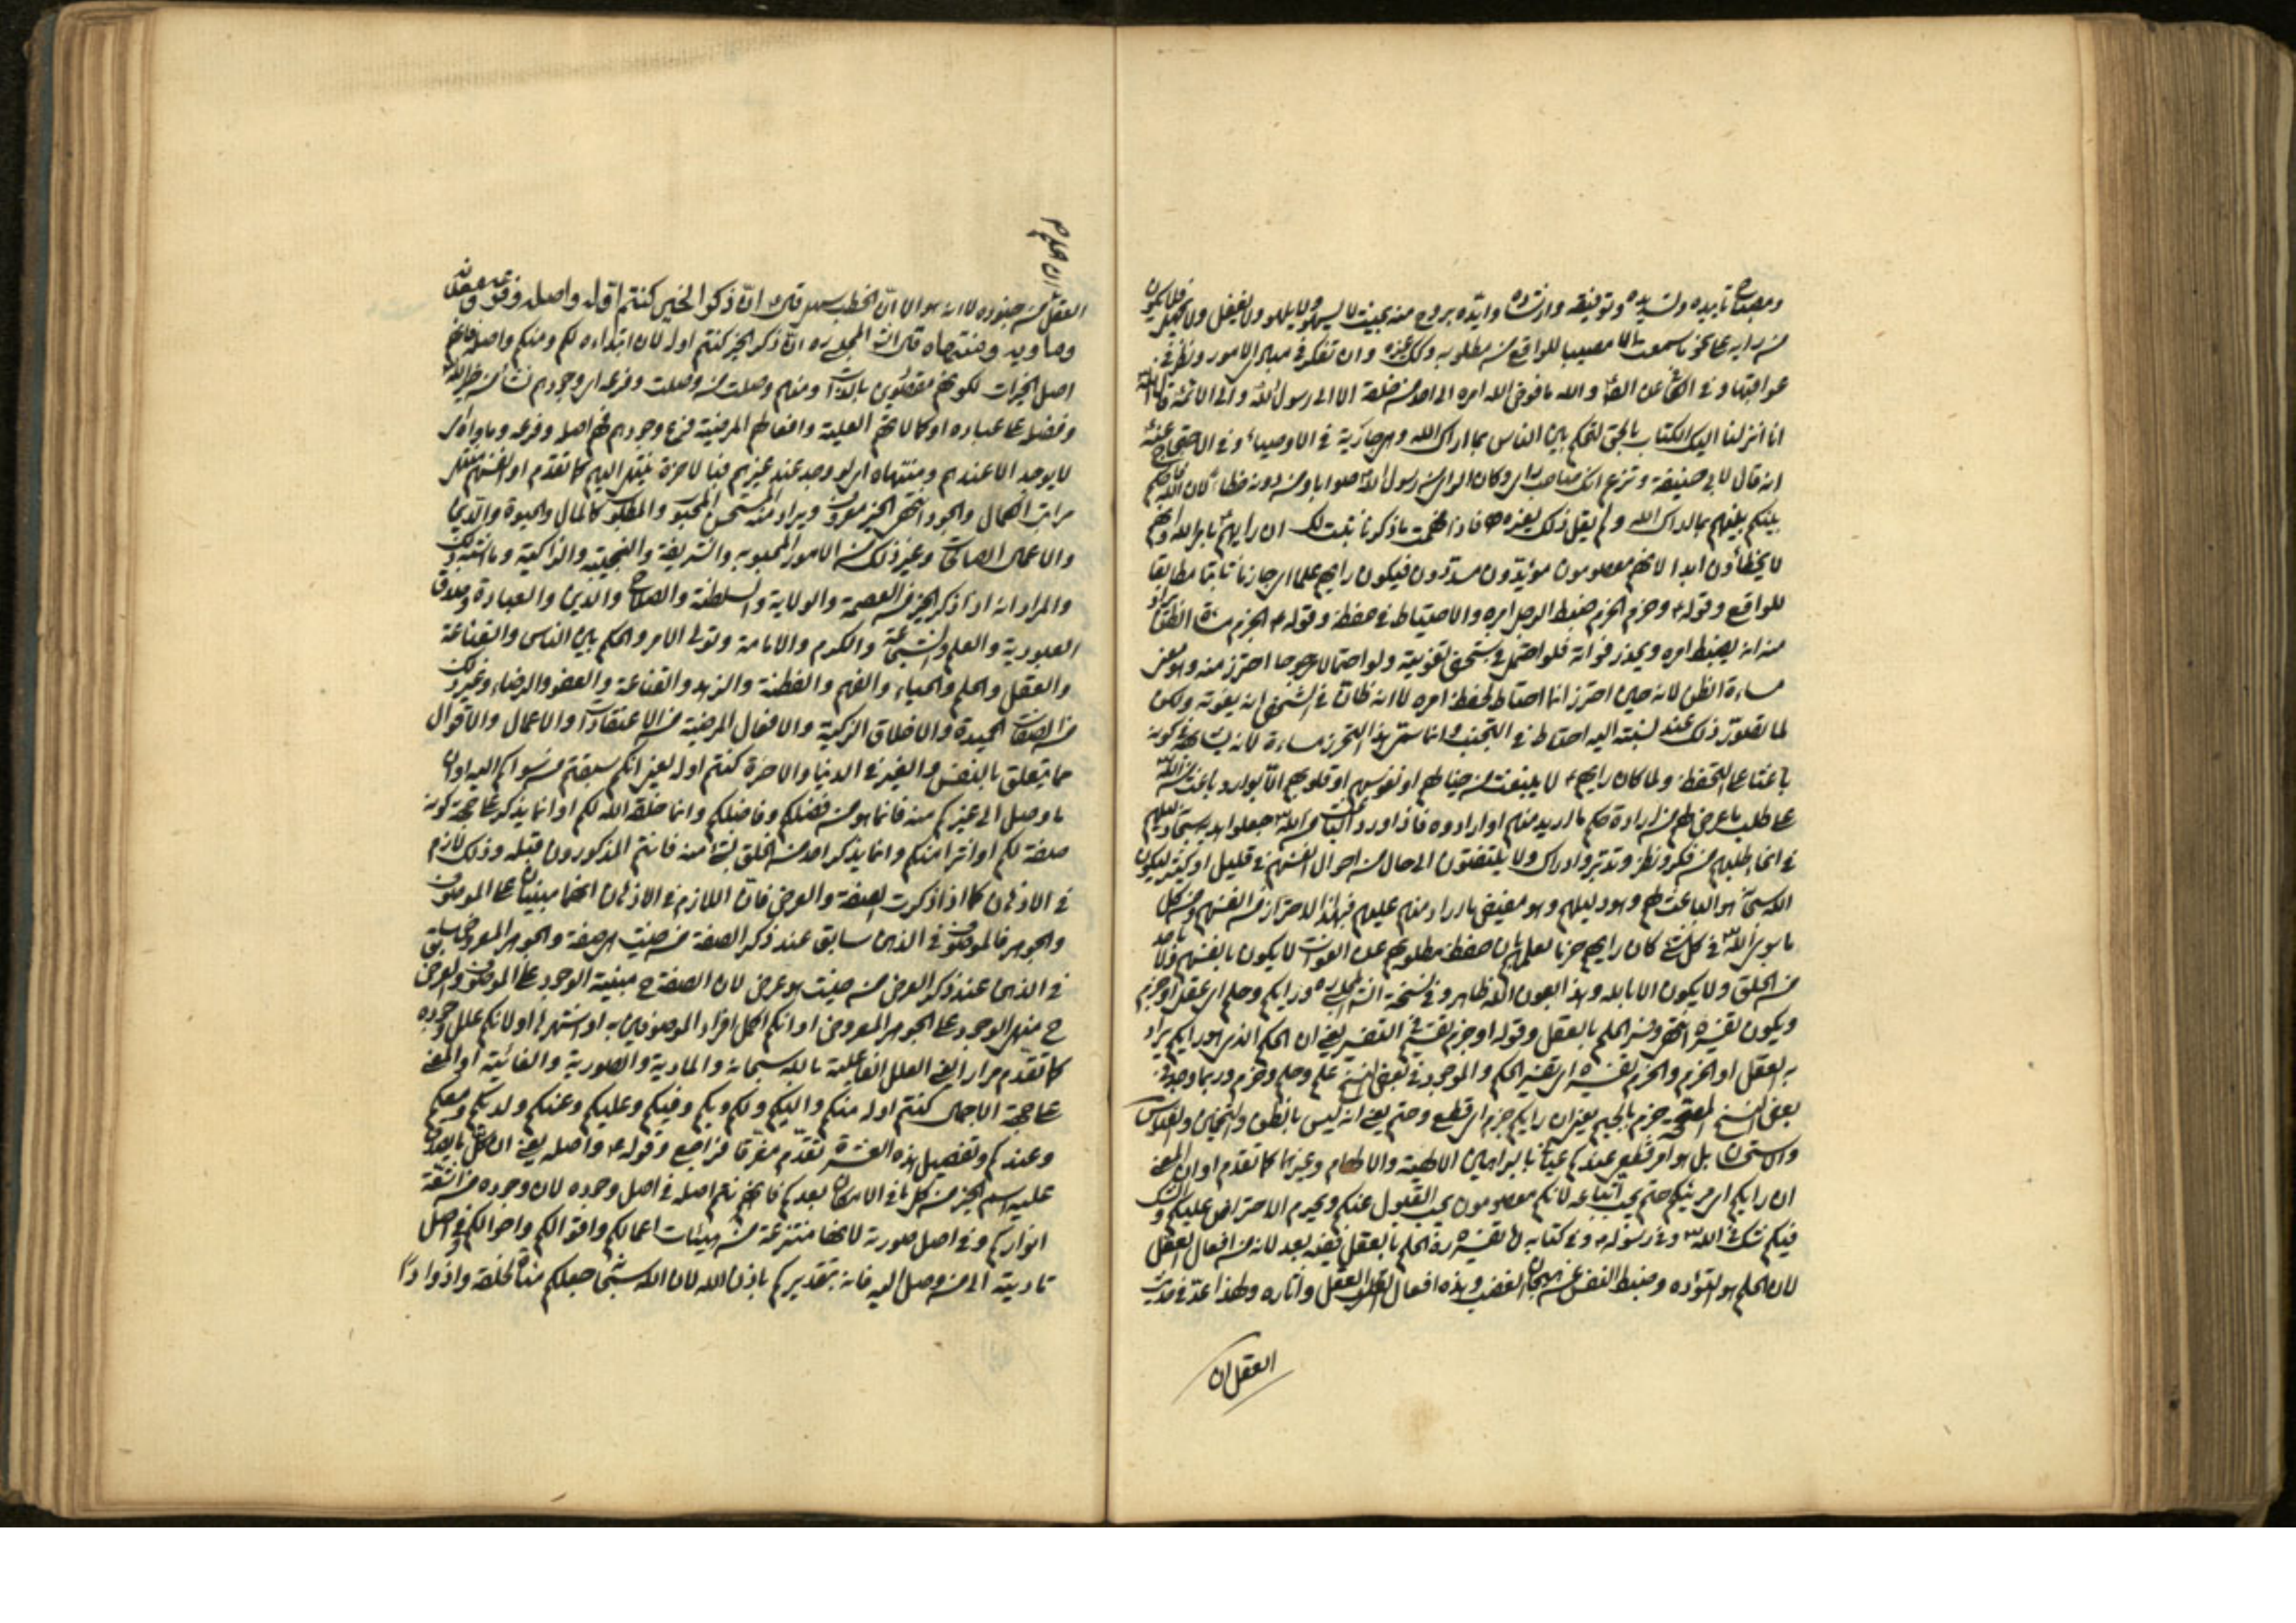 ومصباح تأييده وتسديده وتوفيقه وارشاده وايده بروح منه بحيث لا يسهو ولا يلهو ولا يغفل ولا يجهل فلا يكون
من رايه على نحو ما سمعت الا مصيبا للواقع من مطلوبه وكك غيره وان تفكر في مبادي الامور ونظر في
عواقبها وفي الكافي عن الصادق والله ما فوض الله امره الى احد من خلقه الا الى رسول الله وآله الائمة قال الله
انا انزلنا اليك الكتاب بالحق لتحكم بين الناس بما اراك الله وهي جارية في الاوصياء وفي الاحتجاج عنه
انه قال لابي حنيفة وتزعم انك صاحب راي وكان الراي من رسول الله صوابا ومن دونه خطأ لان الله قال احكم
بينهم بما اراك الله ولم يقل ذلك لغيره فاذا فهمت ما ذكرنا ثبت لك ان رايهم بامر الله وانهم
لا يخطأون ابدا لانهم معصومون مؤيدون مسددون فيكون رايهم علما اي جازما ثابتا مطابقا
للواقع وقوله وحزم الحزم ضبط الرجل امره والاحتياط في حفظه وقوله الحزم مساءة الظن يراد
منه انه يضبط امره ويحذر فواته فلو احتمل في شخص تفويته ولو احتمالا مرجوحا احترز منه وهو معنى
مساءة الظن لانه حين احترز انما احتاط لحفظ امره لا انه ظان في الشخص انه يفوته ولكن
لما تصور ذلك عند نسبته اليه احتاط في التجنب وانما سمى هذا التحرز مساءة لانه يشابهه في كونه
باعثا على التحفظ ولما كان رايهم لا ينبعث من خيالهم او نفوسهم او قلوبهم الا بوارد باعث من الله
على طلب ما عرض لهم من ارادة حكم ما اريد منهم او ارادوه فاذا ورد الباعث من الله جعلوا الله سبحانه دليلهم
في انحاء طلبهم من فكر ونظر وتدبر وادراك ولا يلتفتون الى حال من احوال انفسهم في قليل او كثير ليكون
الله سبحانه هو الباعث لهم وهو دليلهم وهو مفيض ما اراد منهم عليهم فبهذا الاحتراز من انفسهم ومن كل
ما سوى الله في كل شيء كان رايهم حزما لعلمهم بان حفظ مطلوبهم عن الفوات لا يكون بانفسهم ولا باحد
من الخلق ولا يكون الا بالله وهذا بعون الله ظاهر وفي نسخة الشارح المجلسي ره ورايكم وحلم اي عقل او حزم
ويكون تفسيره انتهى وفسر الحلم بالعقل وقوله او حزم تفسيره في التفسير يعني ان الحكم الذي هو رايكم يراد
به العقل او الحزم والحزم تفسيره اي تفسير الحكم والموجود في بعض النسخ علم وحلم وحزم وربما وجد في
بعض النسخ المصححة جزم بالجيم يعني ان رايكم جزم اي قطع وحتم يعني انه ليس بالظن والتخمين والقياس
والاستحسان بل هو امر قطعي عندكم عيانا بالبراهين الالهية والالهام وغيرهما كما تقدم او ان المعنى
ان رايكم امر منيكم حتم يجب اتباعه لانكم معصومون يجب القبول عنكم ويحرم الاعتراض عليكم والشك
فيكم شك في الله وفي رسوله وفي كتابه واما تفسيره ره الحلم بالعقل ففيه بعد لانه من افعال العقل
لان الحلم هو التؤده وضبط النفس عن هيجان الغضب وهذه افعال العقل وآثاره ولهذا عد في حديث
العقل ان
العقل من جنوده لا انه هو الا ان الخطب سهل قال ان ذكر الخير كنتم اوله واصله وفرعه ومعدنه
ومأويه ومنتهاه قال الشارح المجلسي ره ان ذكر الخير كنتم اوله لان ابتداءه لكم ومنكم واصله فانهم
اصل الخيرات لكونهم مقصودين بالذات ومنهم وصلت من وصلت وفرعه اي وجودهم نشأ من خير الله
وفضله على عباده او كمالاتهم العلية وافعالهم المرضية فرع وجودهم فهم اصله وفرعه ومأواه اي
لا يوجد الا عندهم ومنتهاه اي لو وجد عند غيرهم فبالاخرة ينتهي اليهم كما تقدم او انفسهم منتهى
مراتب الكمال والجود انتهى الخير معروف ويراد منه المستحسن المحبوب والمطلوب كالمال والحيوة والدين
والاعمال الصالحات وغير ذلك من الامور المحبوبه والشريفة والنجيبة والزاكية وما اشبه ذلك
والمراد انه اذا ذكر الخير من العصمة والولاية والسلطنة والصلاح والدين والعبادة وصدق
العبودية والعلم والشجاعة والكرم والامامة وتولى الامر والحكم بين الناس والقناعة
والعقل والحلم والحياء والفهم والفطنة والزهد والقناعة والعفو والرضاء وغير ذلك
من الصفات الحميدة والاخلاق الزكية والافعال المرضية من الاعتقادات والاعمال والاقوال
مما يتعلق بالنفس والغير في الدنيا والاخرة كنتم اوله يعني انكم سبقتم من سواكم اليه او ان
ما وصل الى غيركم منه فانما هو من فضلكم وفاضلكم وانما خلقه الله لكم او انما يذكر على جهة كونه
صفة لكم او اثرا منكم وانما يذكر احد من الخلق بشيء منه فانتم المذكورون قبله وذلك لازم
في الاذهان كما اذا ذكرت الصفة والعرض فان اللازم في الاذهان انهما مبنيان على الموصوف
والجوهر فالموصوف في الذهن سابق عند ذكر الصفة من حيث هي صفة والجوهر المعروض سابق
في الذهن عند ذكر العرض من حيث هو عرض لان الصفة ح مبنية الوجود على الموصوف والعرض
ح مبني الوجود على الجوهر المعروض او انكم اكمل افراد الموصوفين به او اشهرها او لانكم علل وجوده
كما تقدم مرارا يعني العلل الفاعلية بالله سبحانه والمادية والصورية والغائية او المعنى
على جهة الاجمال كنتم اوله منكم واليكم ولكم وبكم وفيكم وعليكم وعنكم ولديكم ومعكم
وعندكم وتفصيل هذه العشرة تقدم مفرقا فراجع وقوله واصله يعني ان كل ما يصدق
عليه اسم الخير من كل ما في الامكان بعدكم فانهم انتم اصله في اصل وجوده لان وجوده من اشعة
انواركم وفي اصل صورته لانها منتزعة من هيئات اعمالكم واقوالكم واحوالكم وفي اصل
تاديته الى من وصل اليه فانه بتقديركم باذن الله لان الله سبحانه جعلكم مناة لخلقه واذوادا